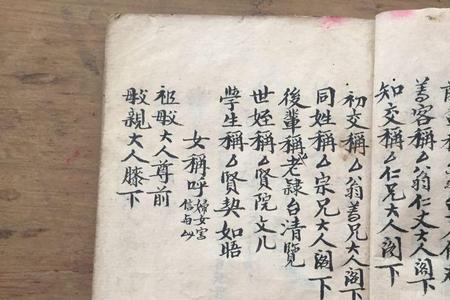 善客稱厶翁仁丈大人閣
知交稱厶仁兄大人閣下
初交稱厶翁善兄大人閣下
同姓稱厶宗兄大人閣下
後輩稱老隸台清覽
世姪稱厶賢院文几
學生稱厶賢契如晤
女稱呼婦女宮信每山
祖母大人尊前
母親大人膝下